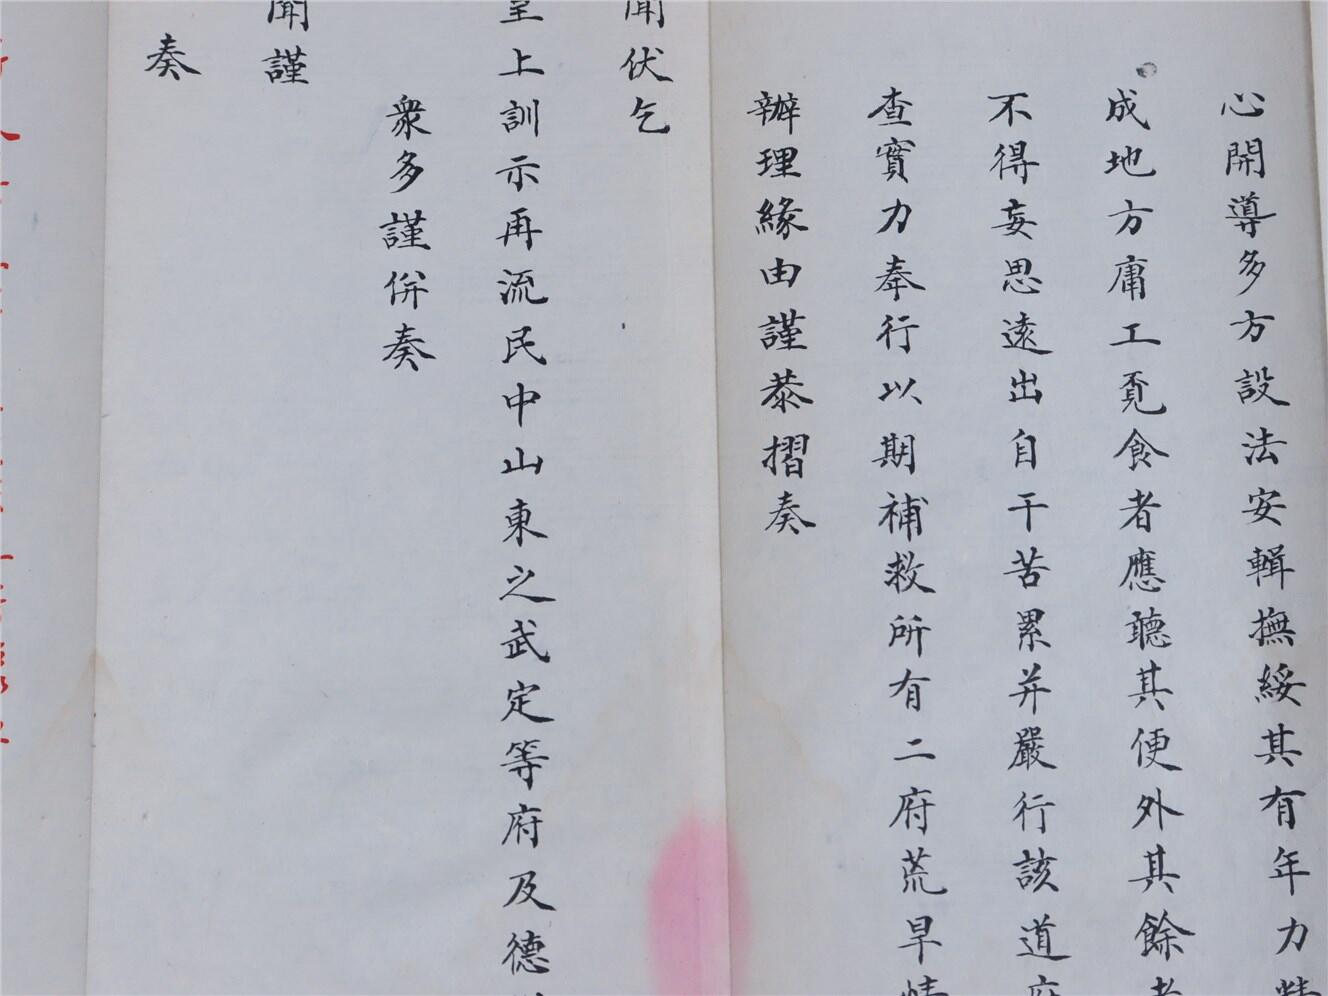 心開導多方設法安輯撫綏其有年力精
成地方庸工覓食者應聽其便外其餘者
不得妄思遠出自干苦累并嚴行該道府
查實力奉行以期補救所有二府荒旱情
辦理緣由謹恭摺奏
聞伏乞
皇上訓示再流民中山東之武定等府及德
衆多謹併奏
聞謹
奏